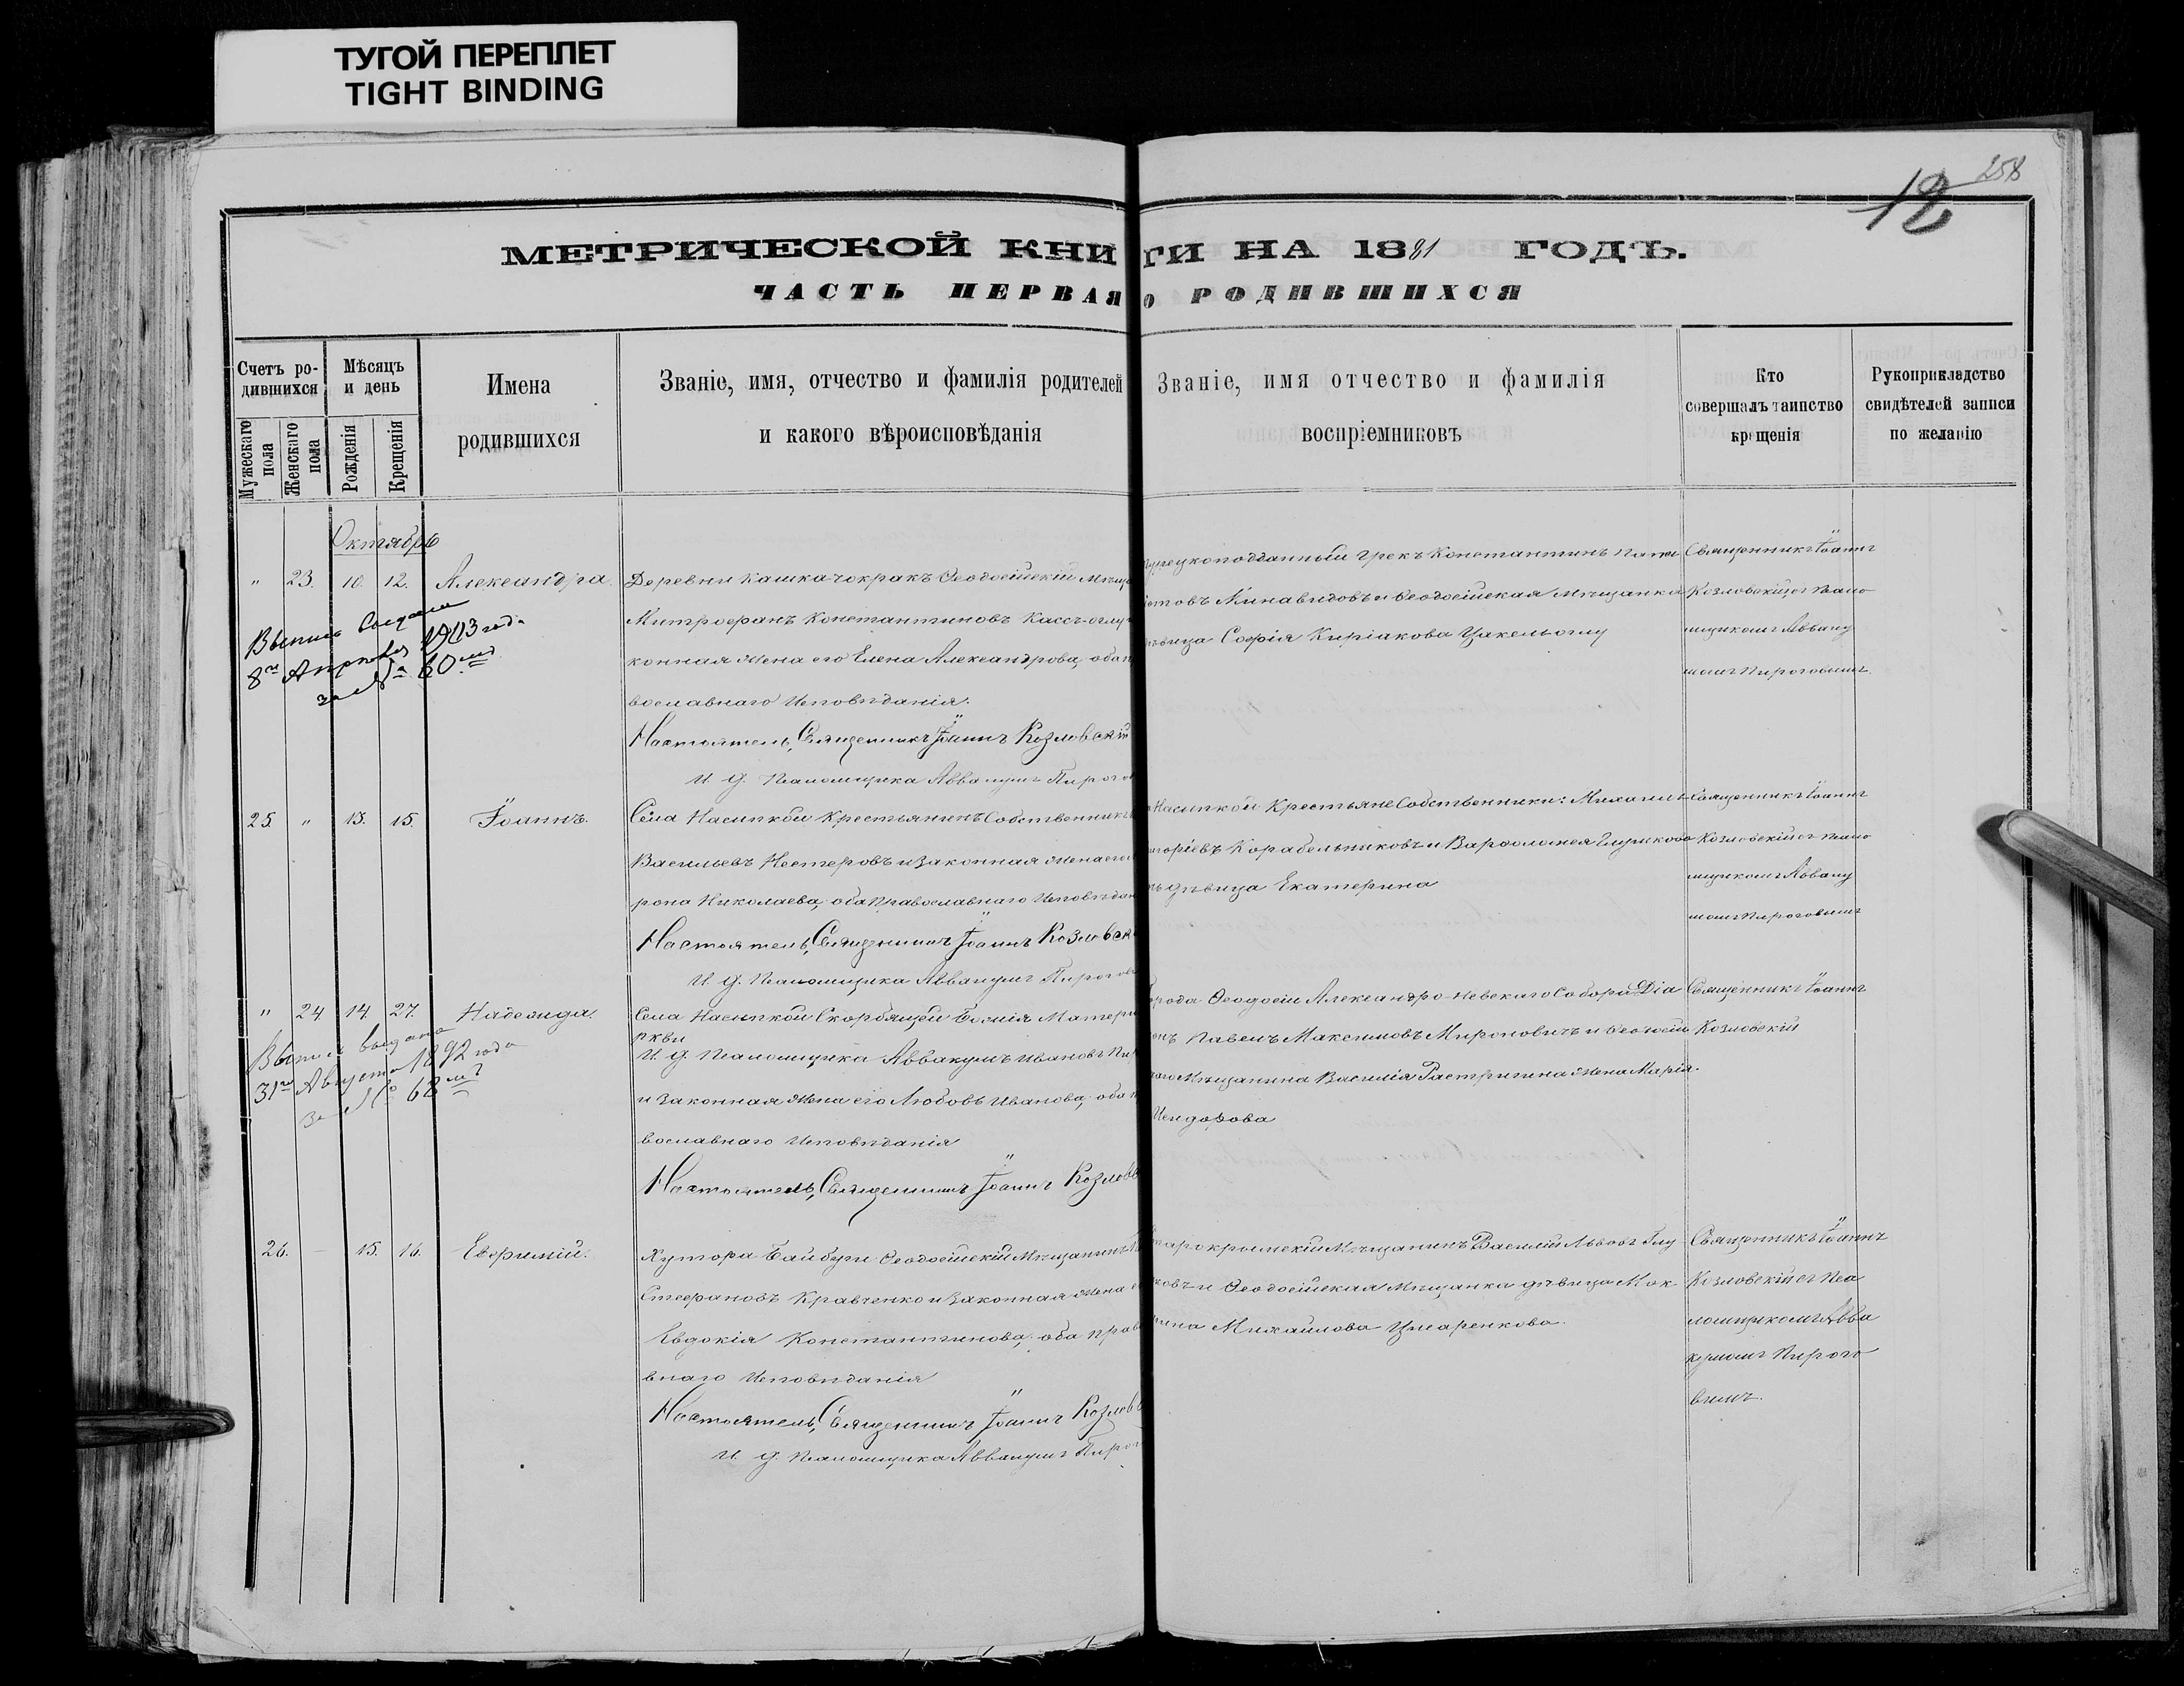 ТУГОЙ ПЕРЕПЛЕТ
TIGHT BINDING
258
12
МЕТРИЧЕСКОЙ КНИГИ НА 1881 ГОДЪ.
ЧАСТЬ ПЕРВАЯ О РОДИВШИХСЯ
Счетъ ро-
дившихся
Мужескаго пола
Женскаго пола
Мѣсяцъ
и день
Рожденія
Крещенія
Имена
родившихся
Званіе, имя, отчество и фамилія родителей
и какого вѣроисповѣданія
Званіе, имя отчество и фамилія
воспріемниковъ
Кто
совершалъ таинство
крещенія
Рукоприкладство
свидѣтелей записи
по желанію
Октябрь
" 23. 10. 12. Александра
Выпись выдана
8го Апрѣля 1903 года
за № 60мъ
Деревни Кашка-чокракъ Ѳеодосійскій Мѣща
Митрофанъ Константиновъ Кассъ-оглу
конная жена его Елена Александрова, оба п
вославнаго Исповѣданія.
Настоятель, Священникъ Іоаннъ Козловскій
И. д. Псаломщика Аввакумъ Пирого
Турецкоподданный Грекъ Константинъ
Минавидовъ и Ѳеодосійская Мѣщанка
дѣвица Софія Киріакова Цакельоглу
Священникъ Іоаннъ
Козловскій съ Псало
мщикомъ Авваку
момъ Пироговымъ.
25. " 13. 15. Іоаннъ.
Села Насыпкой Крестьянинъ Собственникъ
Васильевъ Нестеровъ и законная жена его
рона Николаева, оба Православнаго Исповѣдан
Настоятель, Священникъ Іоаннъ Козловск
И. д. Псаломщика Аввакумъ Пирогов
Насыпкой Крестьяне Собственники: Михаилъ
игоріевъ Корабельниковъ и Варѳоломея
дѣвица Екатерина
Священникъ Іоаннъ
Козловскій съ Псало
мщикомъ Авваку
момъ Пироговымъ
" 24. 14 27. Надежда.
Выпись выдана
31го Августа 1892 года
за № 68мъ
Села Насыпкой Скорбящей Божія Матери
ркви
И. д. Псаломщика Аввакумъ Ивановъ Пир
и законная жена его Любовь Иванова, оба п
вославнаго Исповѣданія
Настоятель, Священникъ Іоаннъ Козловс
орода Ѳеодосіи Александро-Невскаго Собора Діа
онъ Павелъ Максимовъ Мироновичъ и Ѳеодосій
каго Мѣщанина Василія Растрипина жена Марія
Исидорова
Священникъ Іоаннъ
Козловскій
26. — 15. 16. Евфимій.
Хутора Байбуги Ѳеодосійскій Мѣщанинъ
Стефановъ Кравченко и законная жена е
Евдокія Константинова, оба прав
внаго Исповѣданія
Настоятель, Священникъ Іоаннъ Козловс
И. д. Псаломщика Аввакумъ Пирог
тарокрымскій Мѣщанинъ Василій Львовъ Глу
ковъ и Ѳеодосійская Мѣщанка дѣвица Мок
рина Михайлова Цмаренкова.
Священникъ Іоаннъ
Козловскій съ Пса
ломщикомъ Авва
кумомъ Пирого
вымъ.